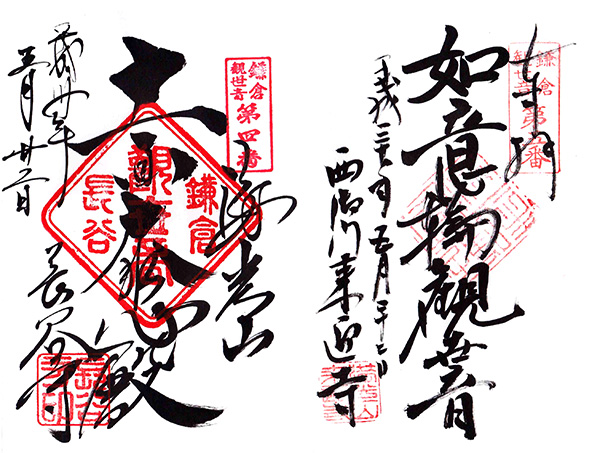 奉拝
鎌倉
観世音
第五番
如意輪観世音
平成三十年五月二十二日
西御門来迎寺
鎌倉
観世音
第四番
海光山
大悲殿
鎌倉
観世音
長谷
五月廿二日
長谷寺